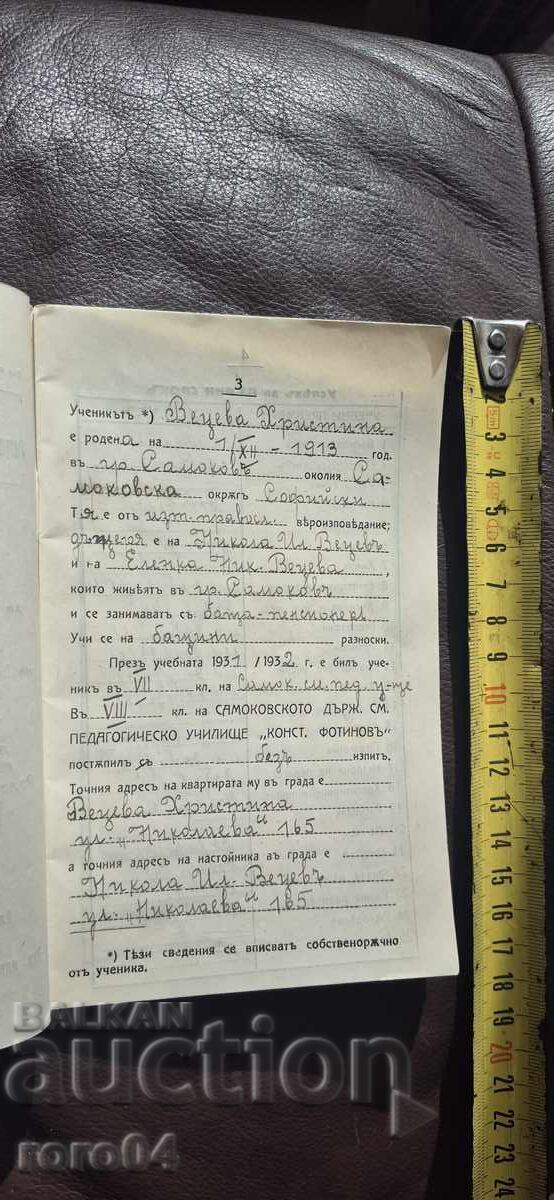 3
Ученикътъ *) Вецева Христина
е родена на 1/XII - 1913 год.
въ гр. Самоковъ околия Са-
моковска окрѫгъ Софийски
Тя е отъ изт. правосл. вѣроизповѣдание;
дъщеря е на Никола Ил. Вецевъ
и на Еленка Ник. Вецева,
които живѣятъ въ гр. Самоковъ
и се занимаватъ съ баща-пенсионеръ
Учи се на бащини разноски.
Презъ учебната 1931/1932 г. е билъ уче-
никъ въ VII кл. на Самок. см. пед. у-ще
Въ VIII кл. на САМОКОВСКОТО ДЪРЖ. СМ.
ПЕДАГОГИЧЕСКО УЧИЛИЩЕ „КОНСТ. ФОТИНОВЪ"
постѫпилъ съ безъ изпитъ.
Точния адресъ на квартирата му въ града е
Вецева Христина
ул. „Николаева" 165
а точния адресъ на настойника въ града е
Никола Ил. Вецевъ
ул. „Николаева" 165
*) Тѣзи сведения се вписватъ собственорѫчно
отъ ученика.
2
3
4
5
6
7
8
9
10
11
12
13
14
15
16
17
18
19
20
21
22
23
24
BALKAN
auction
roro04